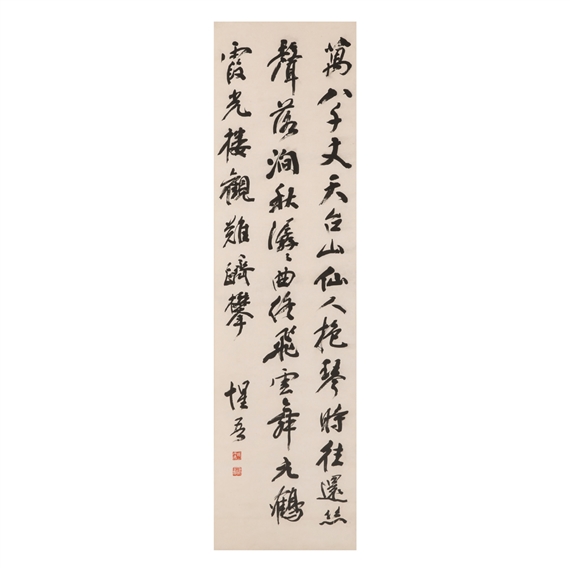 萬八千丈天台山仙人抱琴時往還絲
聲落澗秋潺々曲終飛雲舞元鶴
霞光樓觀難躋攀
惺吾